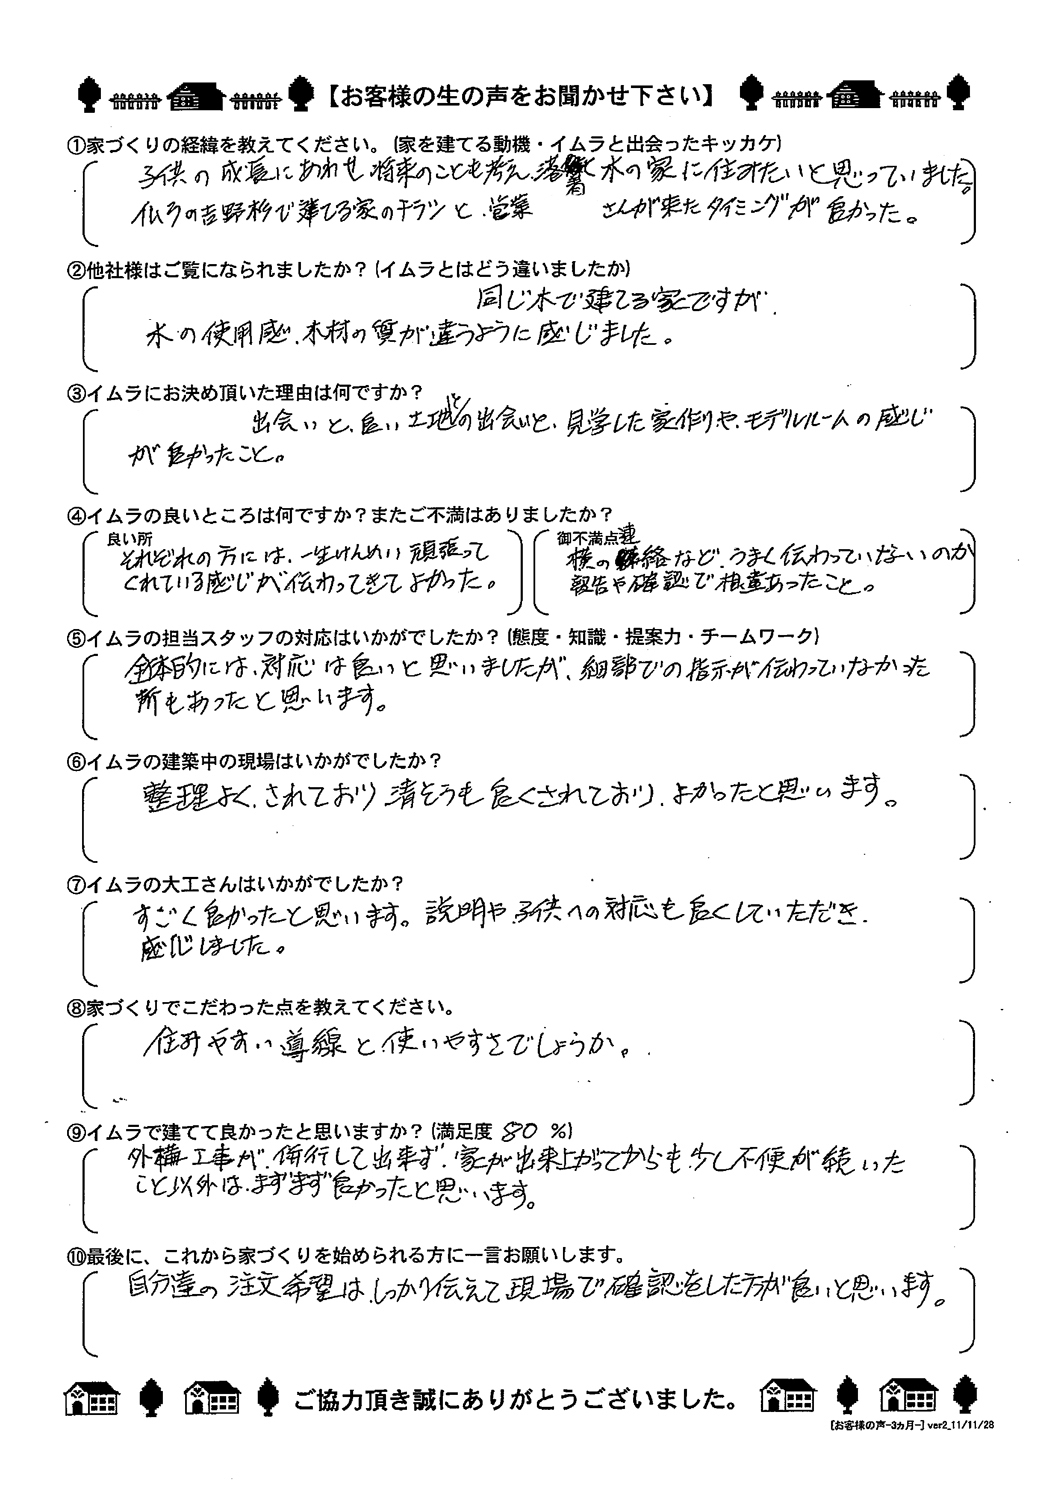 【お客様の生の声をお聞かせ下さい】
①家づくりの経緯を教えてください。(家を建てる動機・イムラと出会ったキッカケ)
子供の成長にあわせ、将来のことも考え、落着く木の家に住みたいと思っていました。
イムラの吉野杉で建てる家のチラシと、営業 さんが来たタイミングが良かった。
②他社様はご覧になられましたか?(イムラとはどう違いましたか)
同じ木で建てる家ですが、
木の使用感、木材の質が違うように感じました。
③イムラにお決め頂いた理由は何ですか?
出会いと、良い土地との出会いと、見学した家作りや、モデルルームの感じ
が良かったこと。
④イムラの良いところは何ですか?またご不満はありましたか?
良い所
それぞれの方には、一生けんめい頑張って
くれている感じが伝わってきてよかった。
御不満点
横の連絡など、うまく伝わっていないのか
報告や確認で相違あったこと。
⑤イムラの担当スタッフの対応はいかがでしたか?(態度・知識・提案力・チームワーク)
全体的には、対応は良いと思いましたが、細部での指示が伝わっていなかった
所もあったと思います。
⑥イムラの建築中の現場はいかがでしたか?
整理よく、されており、清そうも良くされており、よかったと思います。
⑦イムラの大工さんはいかがでしたか?
すごく良かったと思います。説明や、子供への対応も良くしていただき、
感じしました。
⑧家づくりでこだわった点を教えてください。
住みやすい導線と、使いやすさでしょうか。
⑨イムラで建てて良かったと思いますか?(満足度 80 %)
外構工事が、併行して出来ず、家が出来上がってからも、少し不便が続いた
こと以外は、まずまず良かったと思います。
⑩最後に、これから家づくりを始められる方に一言お願いします。
自分達の注文希望は、しっかり伝えて現場で確認をした方が良いと思います。
ご協力頂き誠にありがとうございました。
[お客様の声-3ヵ月-] ver2_11/11/28